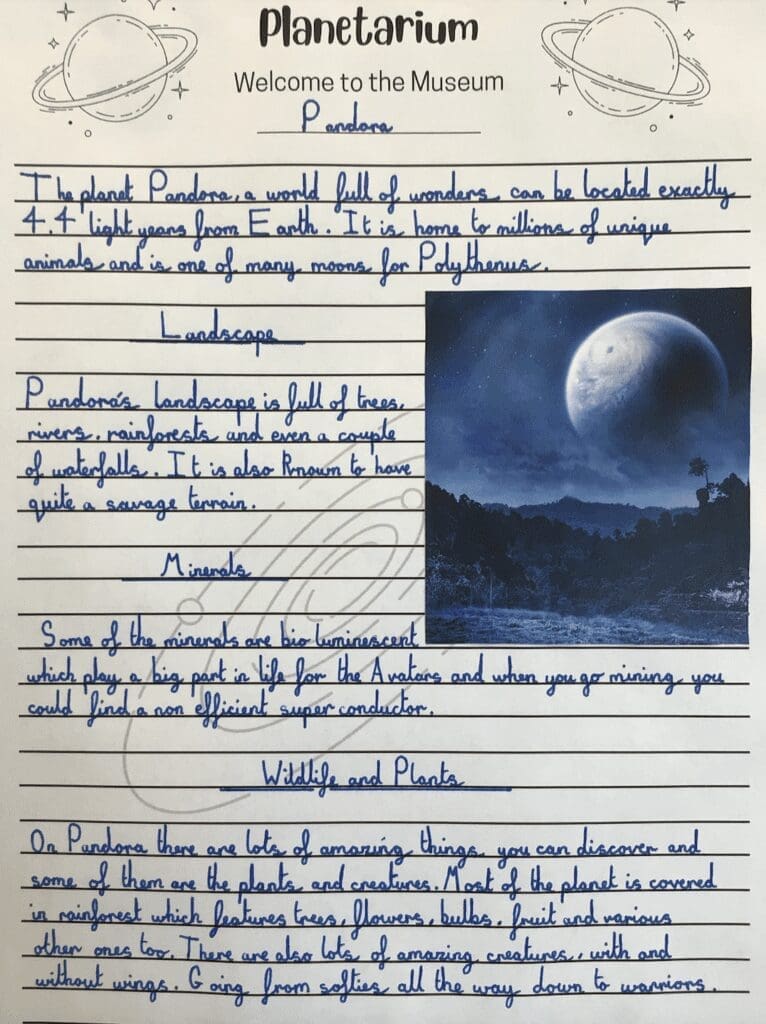 Planetarium
Welcome to the Museum
Pandora
The planet Pandora, a world full of wonders can be located exactly
4.4 light years from Earth. It is home to millions of unique
animals and is one of many moons for Polythenus.
Landscape
Pandora's landscape is full of trees,
rivers, rainforests and even a couple
of waterfalls. It is also known to have
quite a savage terrain.
Minerals
Some of the minerals are bio luminescent
which play a big part in life for the Avatars and when you go mining, you
could find a non efficient super conductor.
Wildlife and Plants
On Pandora there are lots of amazing things, you can discover and
some of them are the plants and creatures. Most of the planet is covered
in rainforest which features trees, flowers, bulbs, fruit and various
other ones too. There are also lots of amazing creatures, with and
without wings. Going from softies all the way down to warriors.